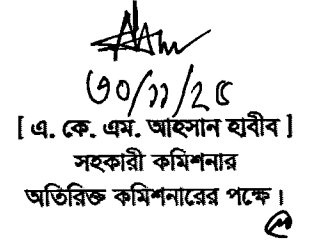 ৩০/১১/২৫
[ এ. কে. এম. আহসান হাবীব ]
সহকারী কমিশনার
অতিরিক্ত কমিশনারের পক্ষে।